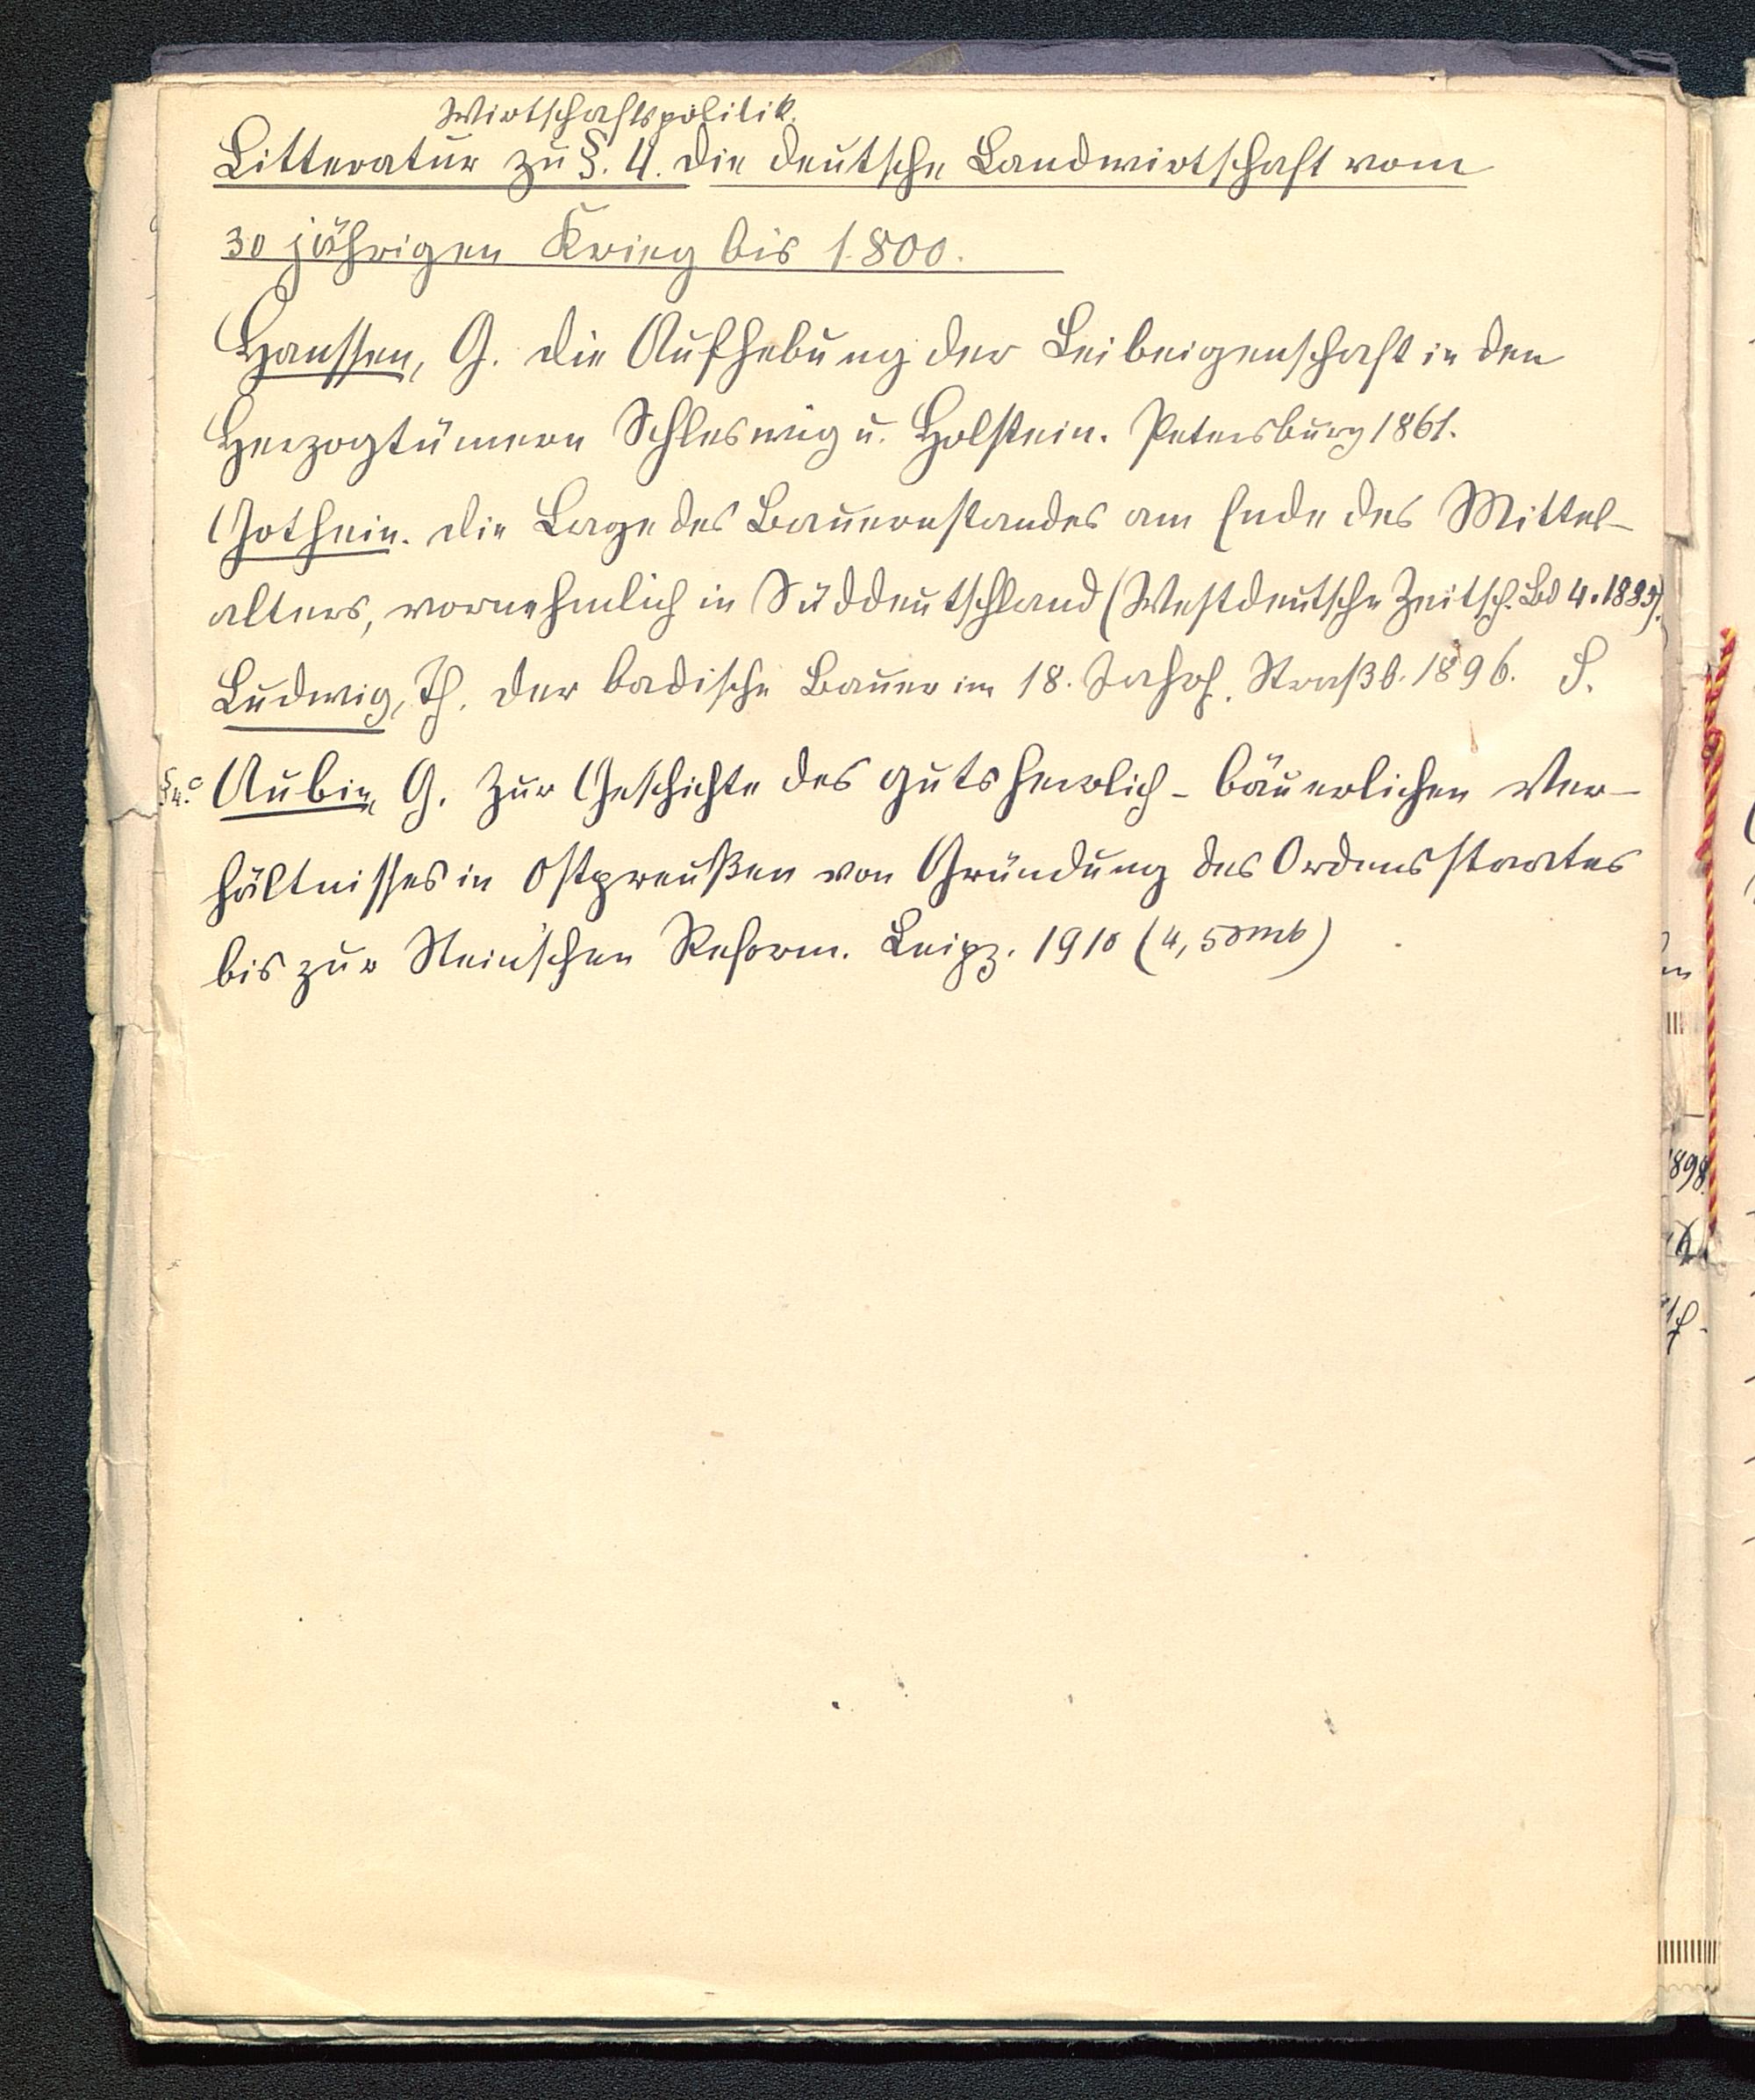 Wirtschaftspolitik.
Litteratur zu §. 4. Die deutsche Landwirtschaft vom
30 jährigen Krieg bis 1800.
Hanssen, G. Die Aufhebung der Leibeigenschaft in den
Herzogtümern Schleswig u. Holstein. Petersburg 1861.
Gothein. Die Lage des Bauernstandes am Ende des Mittel-
alters, vornehmlich in Süddeutschland (Westdeutsche Zeitsch. Bd 4. 1885).
Ludwig, Th. Der badische Bauer im 18. Jahrh. Straßb. 1896. S.
§ 4. c Aubin, G. Zur Geschichte des gutsherrlich-bäuerlichen Ver-
hältnisses in Ostpreußen von Gründung des Ordensstaates
bis zur Stein'schen Reform. Leipz. 1910 (4,50 mk)
1898